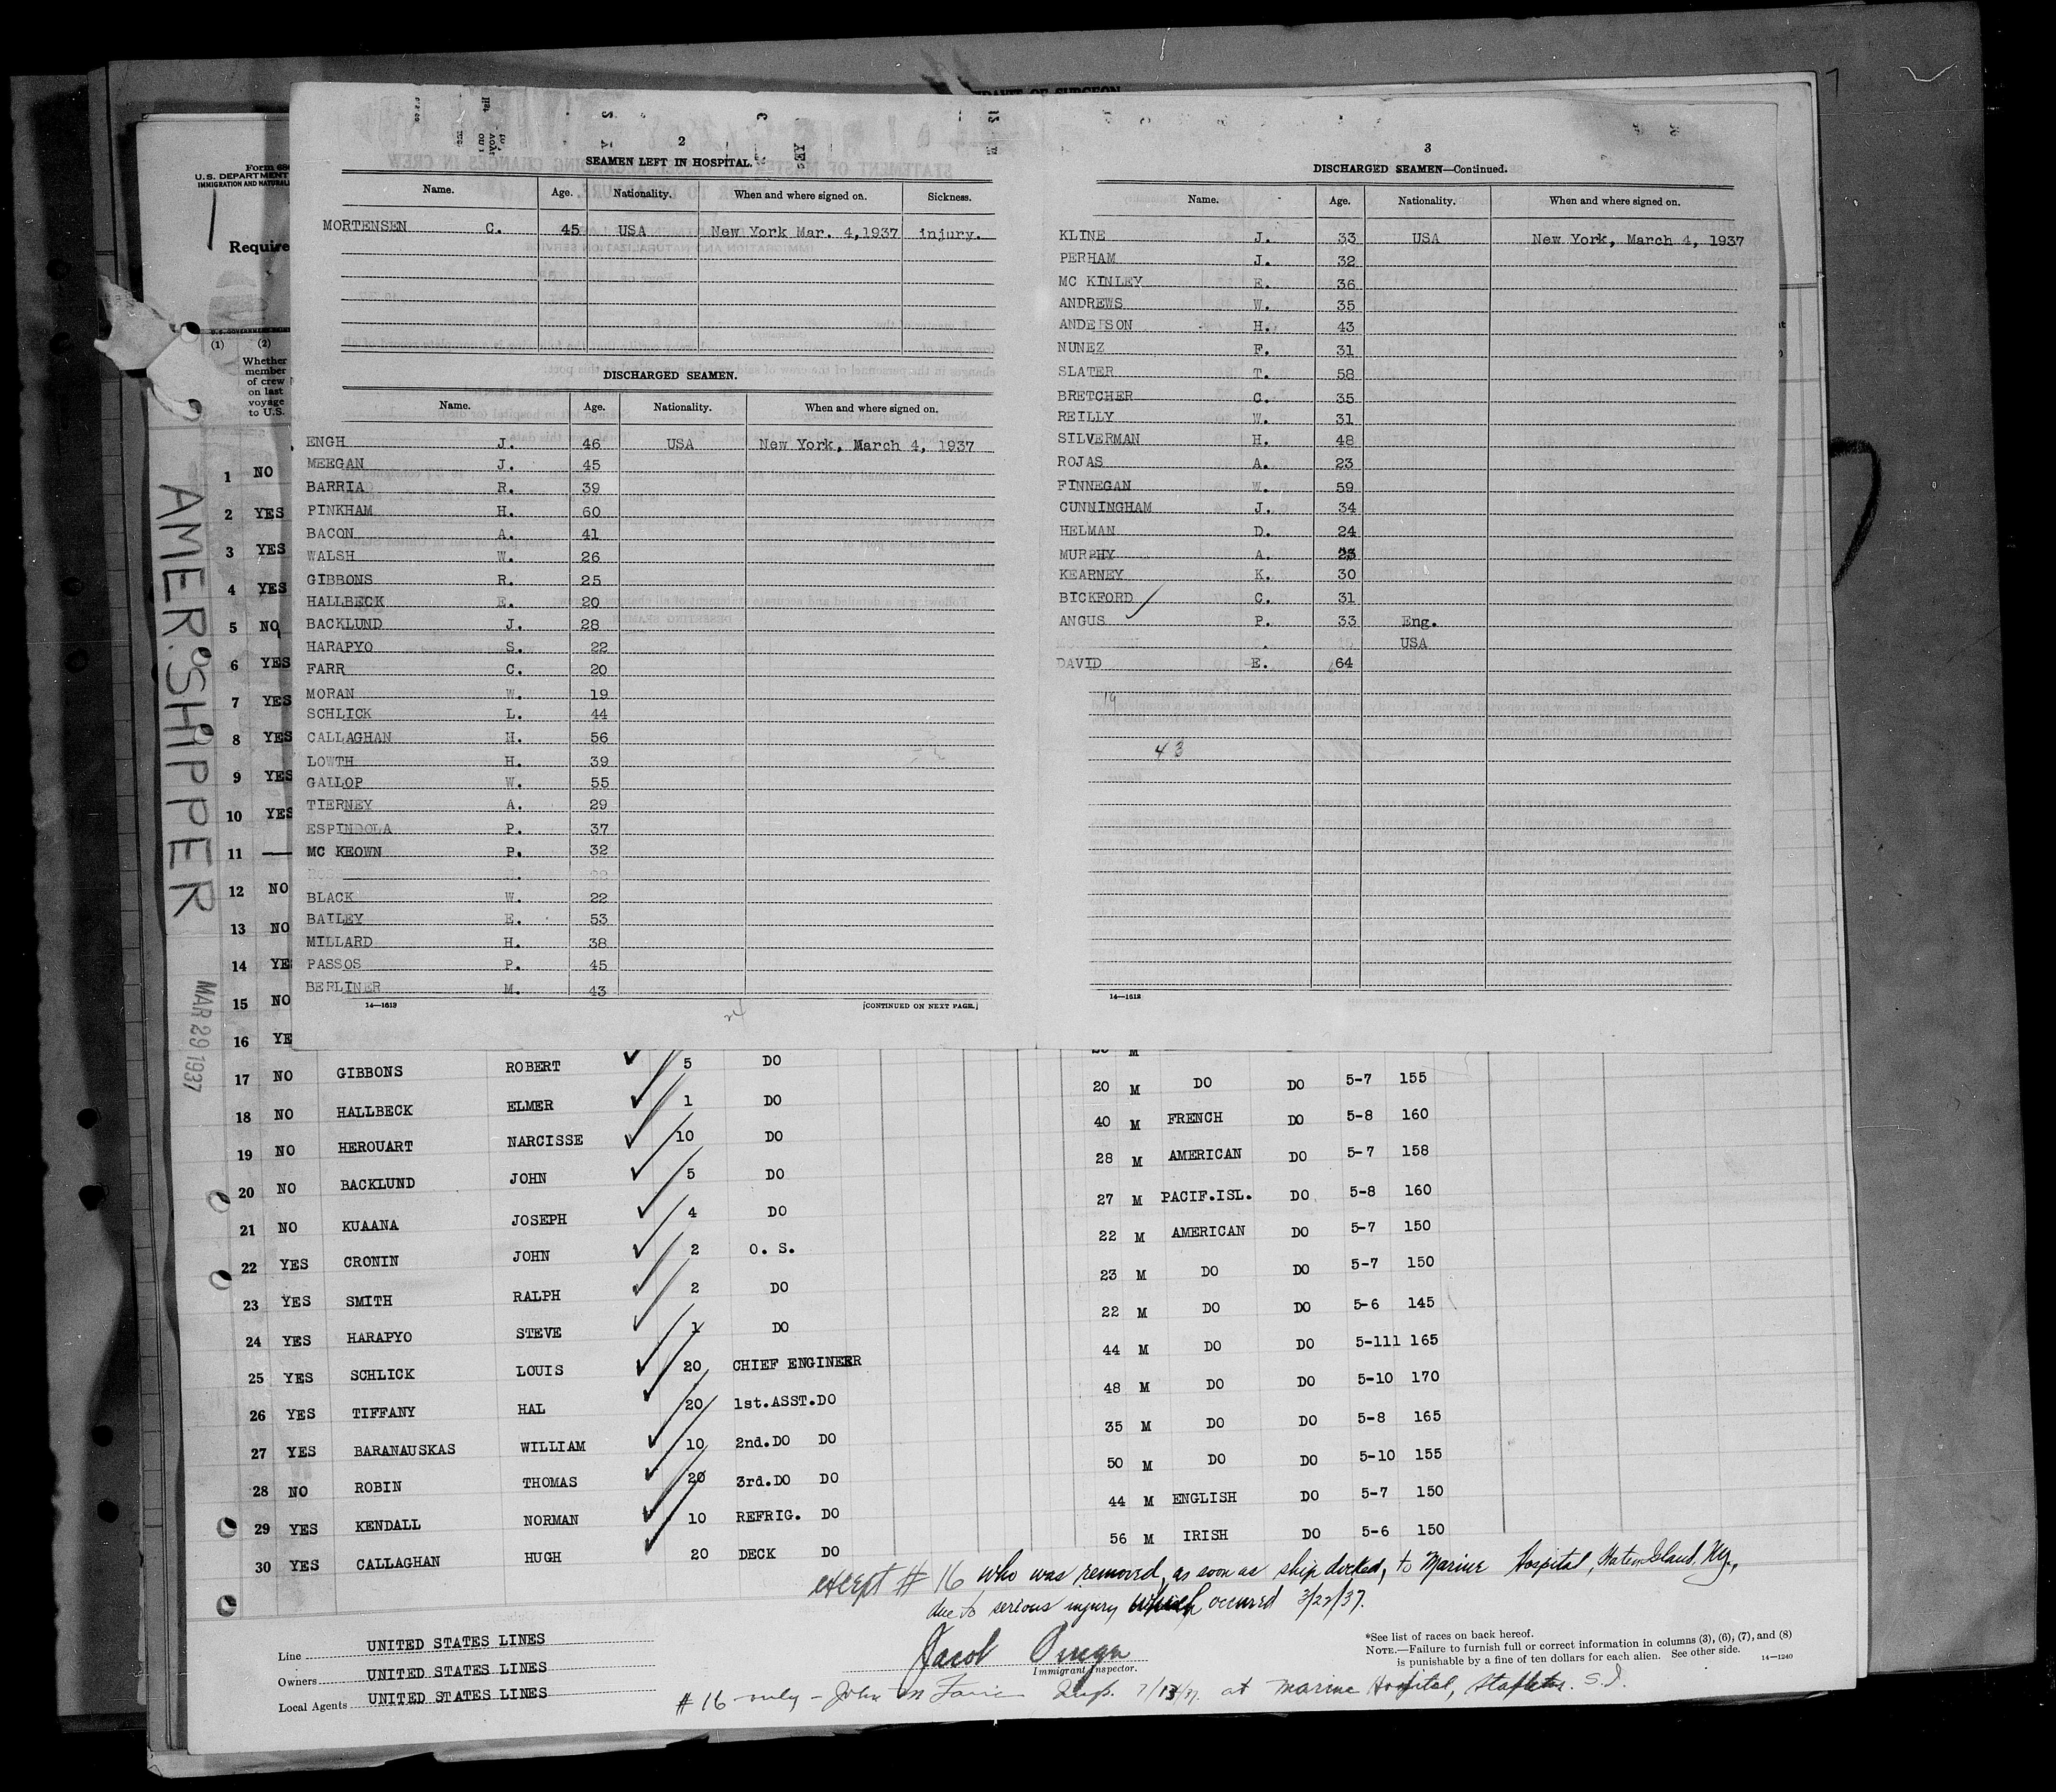 AFFIDAVIT OF SURGEON
U.S. DEPARTMENT
Require
2
SEAMEN LEFT IN HOSPITAL.
Name. Age. Nationality. When and where signed on. Sickness.
MORTENSEN C. 45 USA New York Mar. 4,1937 injury.
DISCHARGED SEAMEN.
Name. Age. Nationality. When and where signed on.
ENGH J. 46 USA New York, March 4, 1937
MEEGAN J. 45
BARRIA R. 39
PINKHAM H. 60
BACON A. 41
WALSH W. 26
GIBBONS R. 25
HALLBECK E. 20
BACKLUND J. 28
HARAPYO S. 22
FARR C. 20
MORAN W. 19
SCHLICK L. 44
CALLAGHAN H. 56
LOWTH H. 39
GALLOP W. 55
TIERNEY A. 29
ESPINDOLA P. 37
MC KEOWN P. 32
BLACK W. 22
BAILEY E. 53
MILLARD H. 38
PASSOS P. 45
BERLINER M. 43
14—1613 [CONTINUED ON NEXT PAGE.]
3
DISCHARGED SEAMEN—Continued.
Name. Age. Nationality. When and where signed on.
KLINE J. 33 USA New York, March 4, 1937
PERHAM J. 32
MC KINLEY E. 36
ANDREWS W. 35
ANDERSON H. 43
NUNEZ F. 31
SLATER T. 58
BRETCHER C. 35
REILLY W. 31
SILVERMAN H. 48
ROJAS A. 23
FINNEGAN W. 59
CUNNINGHAM J. 34
HELMAN D. 24
MURPHY A.
KEARNEY K. 30
BICKFORD C. 31
ANGUS P. 33 Eng.
USA
DAVID E. 64
19
43
14—1613
(1) (2)
Whether
member
of crew
on last
voyage
to U.S.
AMER. SHIPPER
MAR 29 1937
1 NO
2 YES
3 YES
4 YES
5 NO
6 YES
7 YES
8 YES
9 YES
10 YES
11 —
12 NO
13 NO
14 YES
15 NO
16 YE
17 NO GIBBONS ROBERT 5 DO
18 NO HALLBECK ELMER 1 DO 20 M DO DO 5-7 155
19 NO HEROUART NARCISSE 10 DO 40 M FRENCH DO 5-8 160
20 NO BACKLUND JOHN 5 DO 28 M AMERICAN DO 5-7 158
21 NO KUAANA JOSEPH 4 DO 27 M PACIF.ISL. DO 5-8 160
22 YES CRONIN JOHN 2 O. S. 22 M AMERICAN DO 5-7 150
23 YES SMITH RALPH 2 DO 23 M DO DO 5-7 150
24 YES HARAPYO STEVE 1 DO 22 M DO DO 5-6 145
25 YES SCHLICK LOUIS 20 CHIEF ENGINEER 44 M DO DO 5-111 165
26 YES TIFFANY HAL 20 1st.ASST.DO 48 M DO DO 5-10 170
27 YES BARANAUSKAS WILLIAM 10 2nd.DO DO 35 M DO DO 5-8 165
28 NO ROBIN THOMAS 20 3rd.DO DO 50 M DO DO 5-10 155
29 YES KENDALL NORMAN 10 REFRIG. DO 44 M ENGLISH DO 5-7 150
30 YES CALLAGHAN HUGH 20 DECK DO 56 M IRISH DO 5-6 150
except # 16 who was removed, as soon as ship docked, to Marine Hospital, Staten Island, N.Y.,
due to serious injury which occured 3/22/37.
Line UNITED STATES LINES
Owners UNITED STATES LINES
Local Agents UNITED STATES LINES
Jacob
Immigrant Inspector.
*See list of races on back hereof.
NOTE.—Failure to furnish full or correct information in columns (3), (6), (7), and (8)
is punishable by a fine of ten dollars for each alien. See other side.
14—1240
# 16 only – John Insp. at Marine Hospital, Stapleton. S.I.